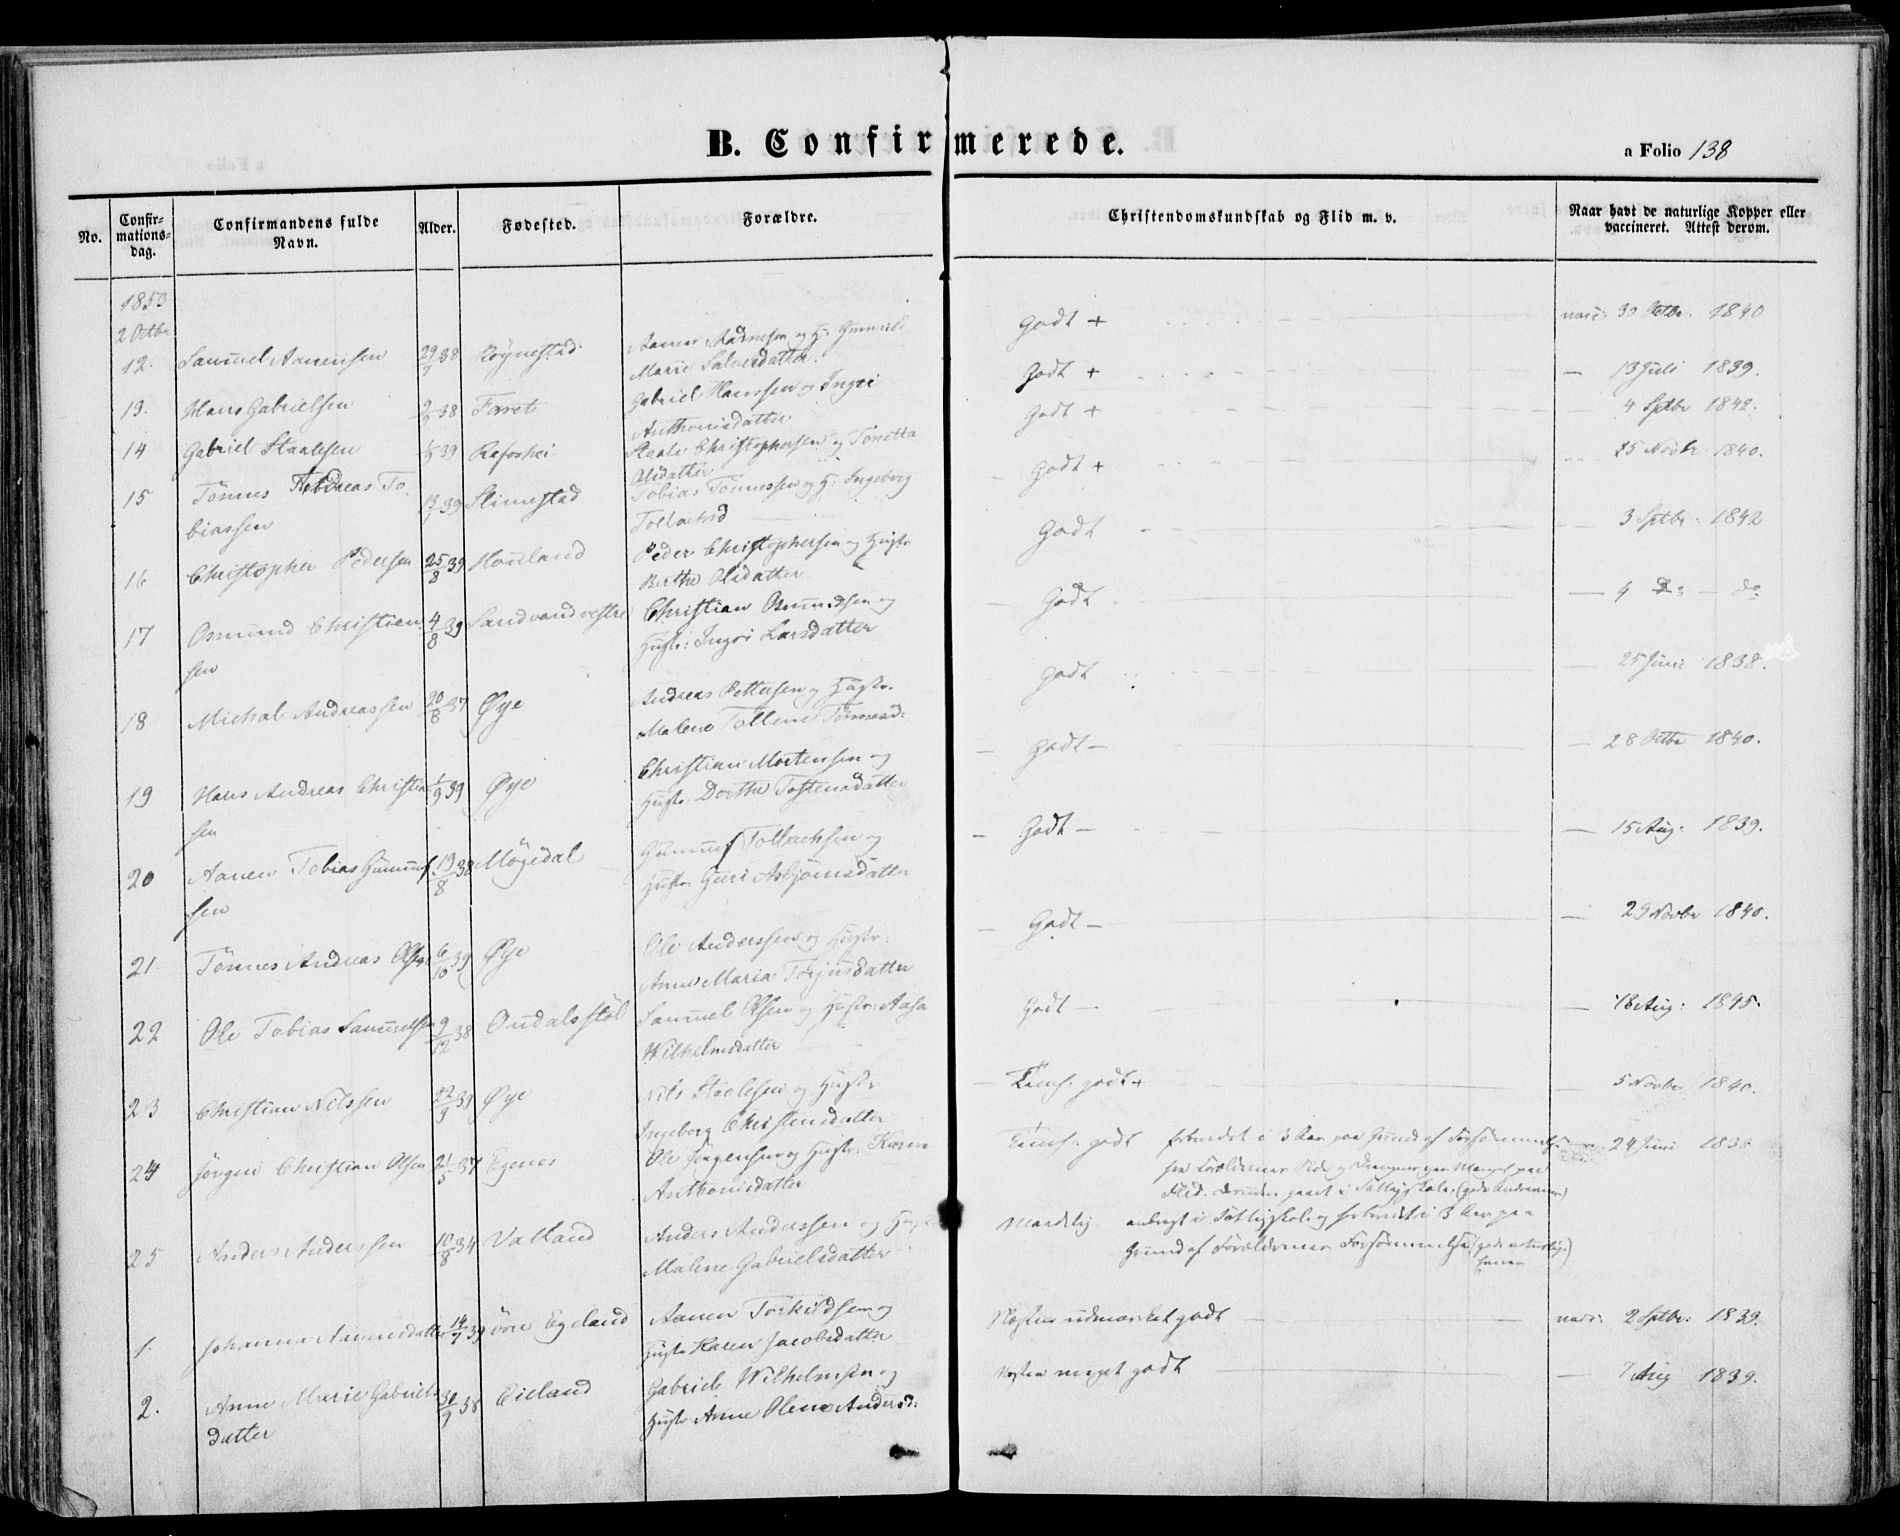 B. Confirmerede.
a Folio 138
No.
Confir-
mations-
dag.
Confirmandens fulde
Navn.
Alder.
Fødested.
Forældre.
Christendomskundskab og Flid m. v.
Naar havt de naturlige Kopper eller
vaccineret. Attest derom.
1853
2 Octbr
12. Samuel Aanensen 29/7 38 Røynestad Aanen og H:
Marie Salvesdatter. Godt + 30 Octbr. 1840
13. Hans Gabrielsen 38 Faret Gabriel Hanssen og Ingri
Anthonisdatter Godt + — 13 Juli 1839.
14 Gabriel Staalesen 39 Refoshei Staale Christophersen og Tonetta
Olsdatter Godt + 4 Sptbr 1842.
15 Tönnes Andreas To- 39 Slimestad Tobias Tönnessen og H: Ingeborg
biassen Godt + 25 Novbr 1840.
16 Christopher Pedersen 25/8 39 Houland Peder Christophersen og Hustr
Berthe Olsdatter Godt 3 Sptbr. 1842
17 Osmund Christian- 4/8 39 Sandvand vestre Christian Osmundsen og
sen Hustr: Ingri Larsdatter Godt — 4 do — do
18 Michal Andreassen 20/8 37 Øye Andreas Pettersen og Hustr.
Malene Tollene Tönnesd: Godt — 25 Juni 1838.
19 Hans Andreas Christian 1/9 39 Øye Christian Mortensen og
sen Hustr: Dorthe Tostensdatter Godt — — 28 Octbr 1840.
20 Aanen Tobias Gunnuf 19/8 38 Møgedal Gunnuf Tollachsen og
sen Hustr Guri Asbjörnsdatter Godt — — 15 Aug: 1839.
21. Tönnes Andreas Olsen 6/10 39 Øye Ole Anderssen og Hustr:
Anne Maria Torjusdatter Godt — — 29 Novbr 1840.
22 Ole Tobias Samuelsen 9/12 38 Oudalsstøl Samuel Olsen og Hustr: Aasa
Wilhelmsdatter Godt — — 18 Aug: 1845.
23 Christian Nilssen 22/9 39 Øye Nils Staalesen og Hustr
Ingeborg Christensdatter Temf. godt + 5 Novbr 1840.
24 Jörgen Christian Olsen 21/5 37 Egenes Ole Jörgensen og Hustr: Karen
Anthonisdatter Temf. godt forberedet i 3 Aar paa Grund af Forsømmelse 24 Juni
fra Forældrenes Side og Drengens egen Mangel paa
Flid.
25 Anders Anderssen 10/8 34 Valland Anders Anderssen og Hustr
Malene Gabrielsdatter Maadelig forberedet i 3 Aar paa
Grund af Forældrenes Forsømmelse
1. Johanna Aanensdatter 14/7 39 övre Egeland Aanen Torkildsen og
Hustr Karen Jacobsdatter Næsten udmærket godt 2 Sptbr: 1839.
2. Anne Marie Gabriels- 30/9 38 Eieland Gabriel Wilhelmsen og
datter Hustr Anne Olene Andersd: Næsten meget godt — 7 Aug 1839.